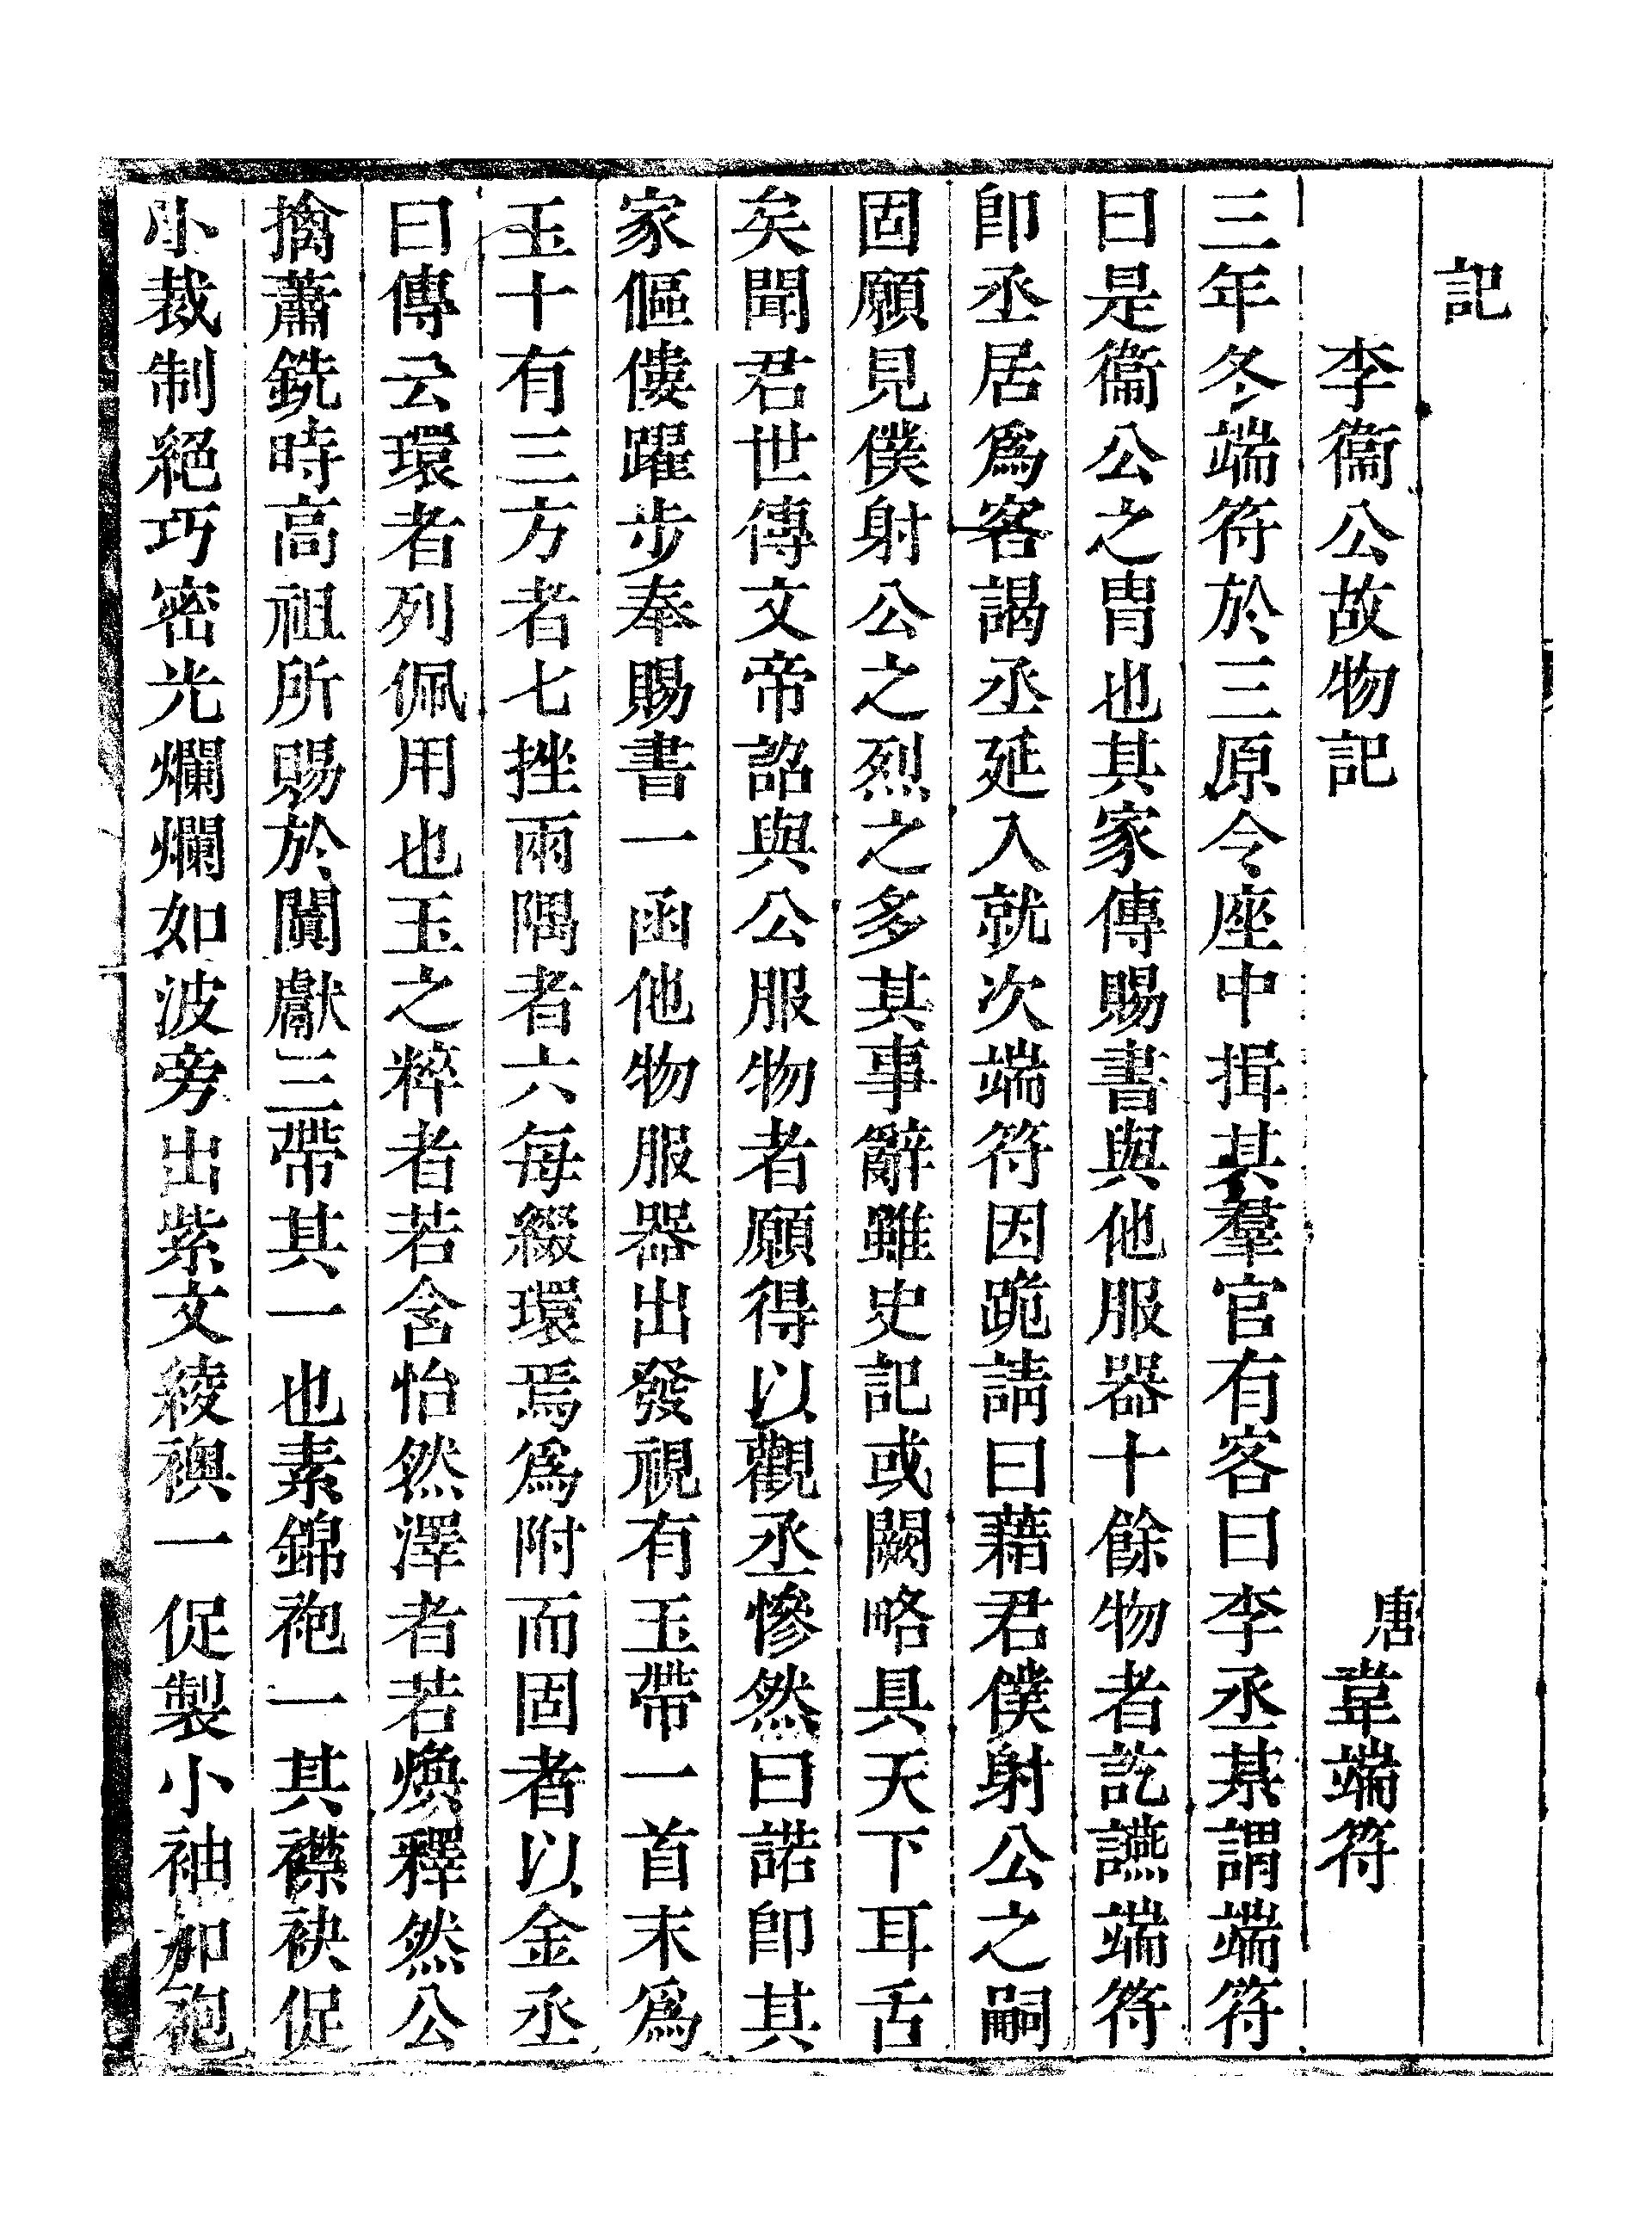 記
李衞公故物記
唐韋端符
三年冬端符於三原令座中揖其羣官有客曰李丞某謂端符
曰是衞公之冑也其家傳賜書與他服器十餘物者訖讌端符
卽丞居爲客謁丞延入就次端符因跪請曰藉君僕射公之嗣
固願見僕射公之烈之多其事辭雖史記或闕略具天下耳舌
矣聞君世傳文帝詔與公服物者願得以觀丞慘然曰諾卽其
家傴僂躍步奉賜書一函他物服器出發視有玉帶一首末爲
玉十有三方者七挫兩隅者六每綴環焉爲附而固者以金丞
曰傳云環者列佩用也玉之粹者若含怡然澤者若煥釋然公
擒蕭銑時高祖所賜於闐獻三帶其一也素錦袍一其襟袂促
小裁制絕巧密光爛爛如波旁出紫文綾襖一促製小袖如袍